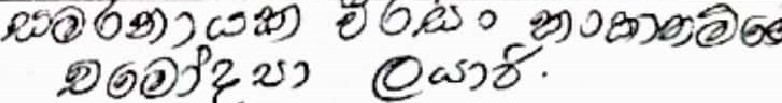 සමරනායක වීරසං කංකානම්ගෙ
චමෝදපා ලයාරි.